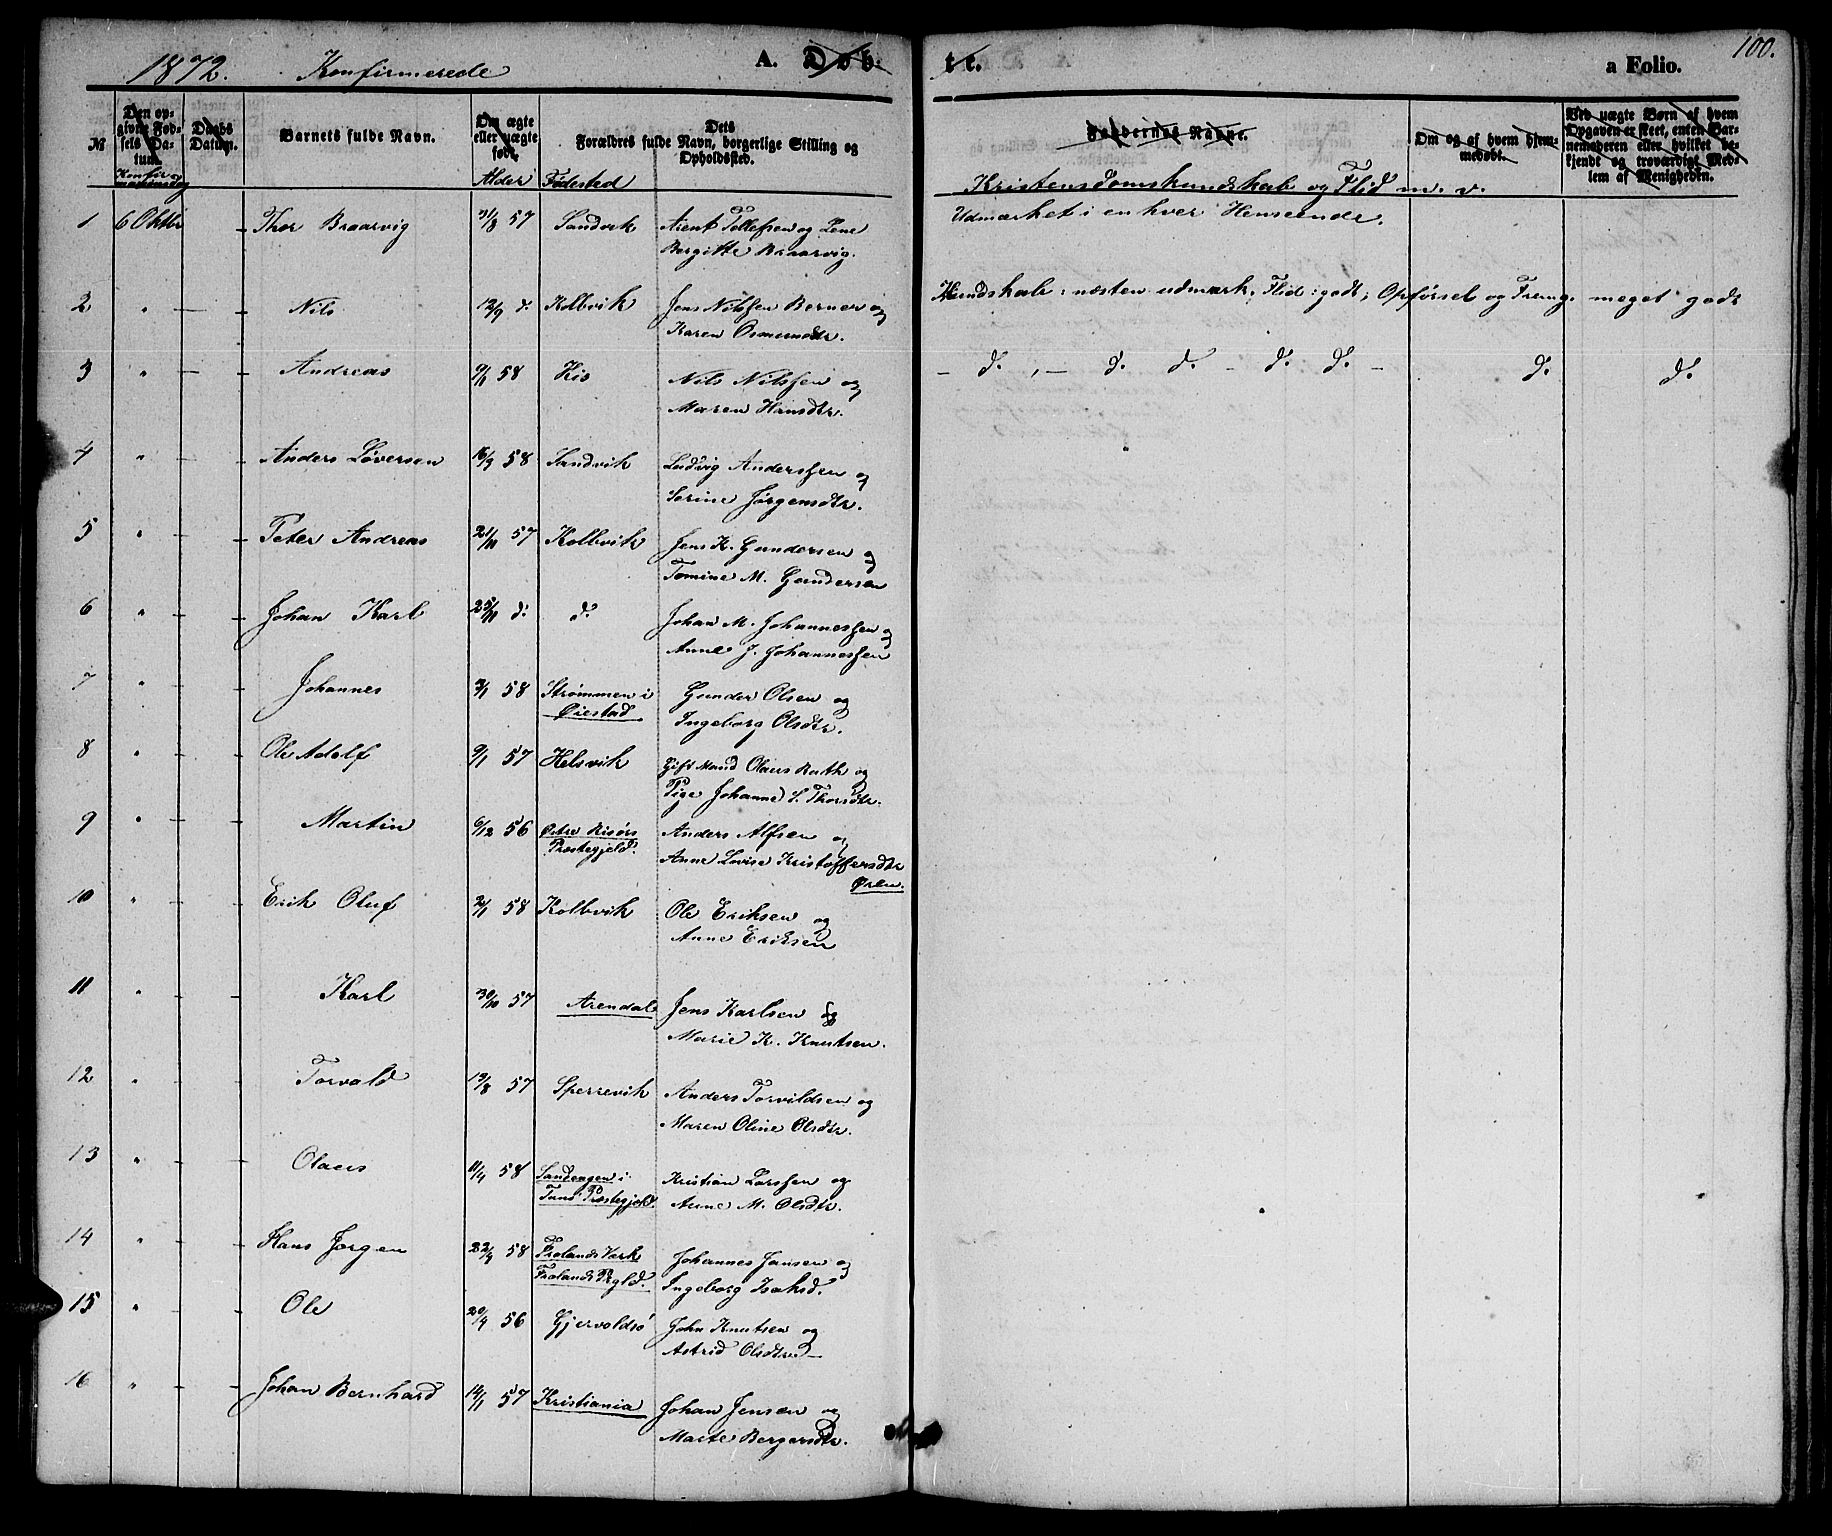 1872. Konfirmerede A. Døb-
№ Den opgivne Fødsels Datum. Daabs Datum. Barnets fulde Navn. Om ægte eller uægte født. Forældres fulde Navn, borgerlige Stilling og Dets Opholdssted.
Konfirmationsdag Alder Fødested
1 6 Oktbr — Thor Braarvig 31/8 57 Sandvik Arent Tellefsen og Lene
Bergitte Braarvig.
2 " — Nils 12/9 d. Kolbvik Jens Nilssen Berner og
Karen Osmundsdtr.
3 " — Andreas 9/1 58 His Nils Nilssen og
Maren Hansdtr.
4 " — Anders Løversen 16/3 58 Sandvik Ludvig Anderssen og
Sørine Jørgensdtr.
5 " — Peter Andreas 21/11 57 Kolbvik Jens K. Gundersen og
Tomine M. Gundersen
6 " — Johan Karl 25/11 d. d. Johan M. Johannessen og
Anne J. Johannessen
7 " — Johannes 3/1 58 Strømmen i Gunder Olsen og
Øiestad Ingeborg Olsdtr.
8 " — Ole Adolf 9/1 57 Helsvik Gift Mand Olaus Rath og
Pige Johanne S. Thorsdtr.
9 " — Martin 6/12 56 Østre Risørs Anders Alfsen og
Præstegjeld. Anne Lovise Kristoffersdtr
Øren.
10 " — Erik Oluf 2/1 58 Kolbvik Ole Eriksen og
Anne Eriksen
11 " — Karl 30/10 57 Arendal Jens Karlsen og
Marie K. Knutsen.
12 " — Torvald 19/8 57 Sperrevik Anders Torvildsen og
Maren Oline Olsdtr.
13 " — Olaus 11/4 58 Sandengen i Kristian Larssen og
Tunø Præstegjeld. Anne M. Olsdtr.
14 " — Hans Jørgen 22/4 58 Frolands Verk Johannes Jansen og
Frolands Prgld. Ingeborg Isaksd.
15 " — Ole 20/4 56 Gjervoldsø John Knutsen og
Astrid Olsdtr
16 " — Johan Bernhard 14/1 57 Kristiania Johan Jensen og
Marte Bergersdtr.
te. a Folio. 100.
Faddernes Navne. Om og af hvem hjemmedøbt. Ved uægte Børn af hvem Opgaven er skeet, enten Barnemoderen eller hvilket bekjendt og troværdigt Medlem af Menigheden.
Kristendomskundskab og Flid m. v.
Udmærket i enhver Henseende.
Kundskab: næsten udmærk; Flid: godt; Opførsel og Fremg. meget godt
— d. , — d. d. — d. d. — d. d.